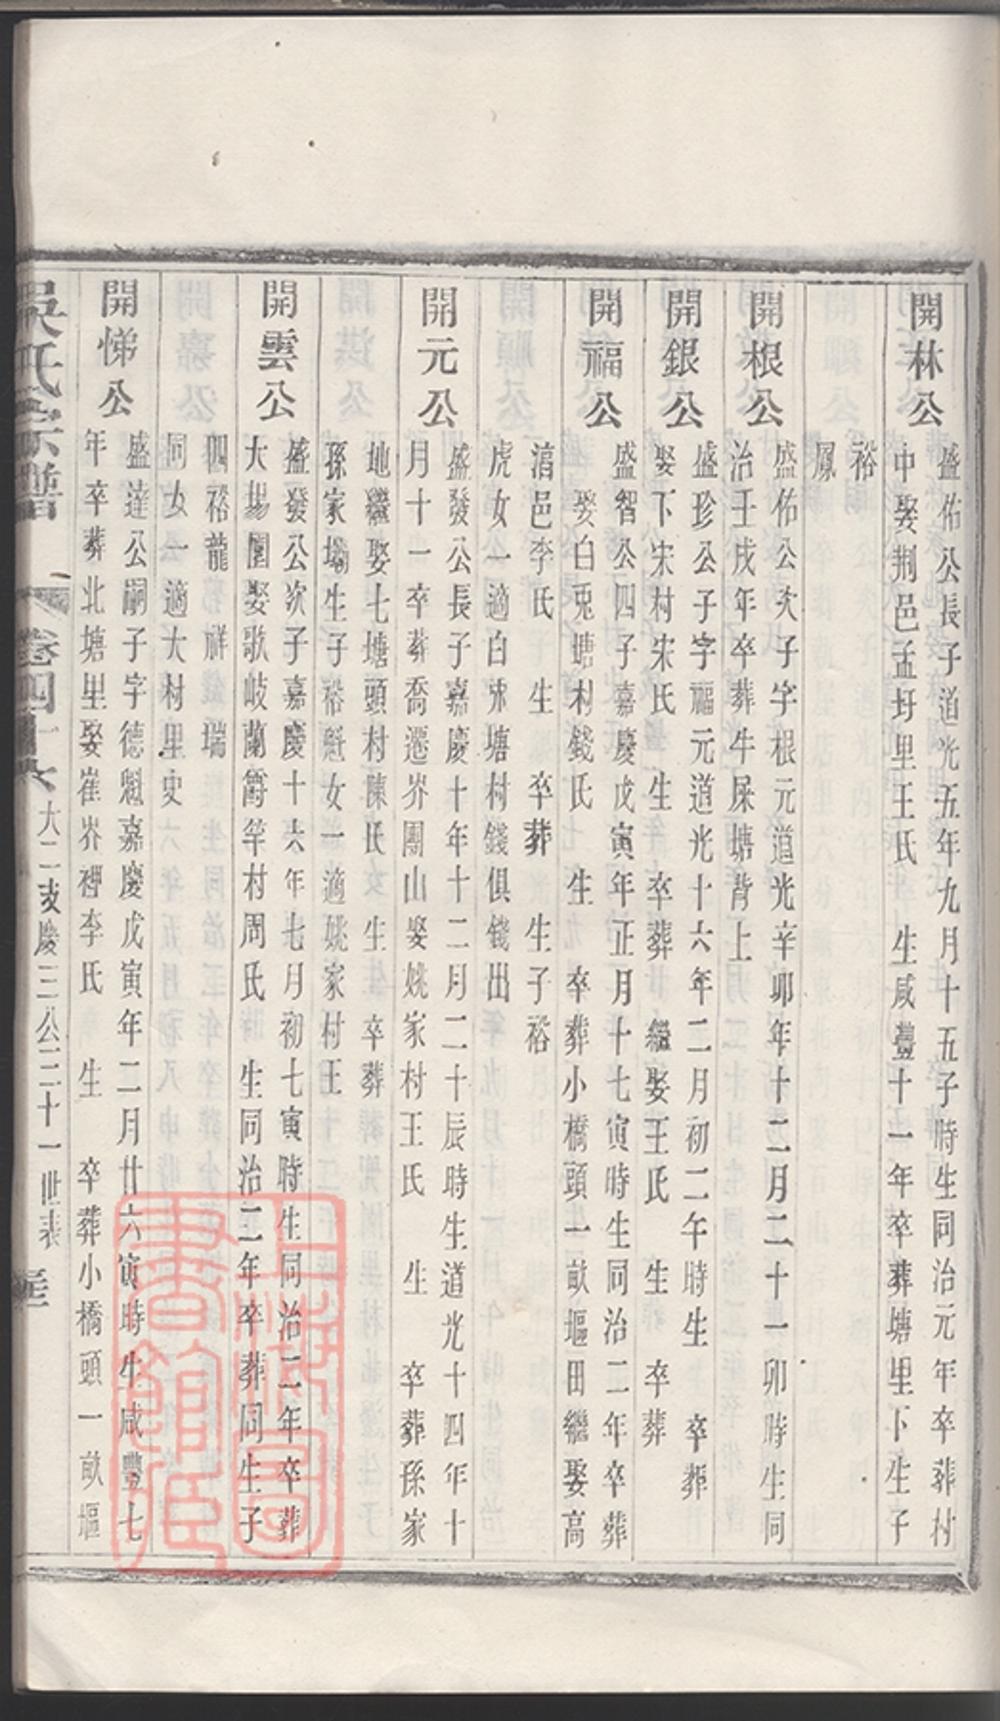 開林公
盛佑公長子道光五年九月十五子時生同治元年卒葬村
中娶荆邑孟圩里王氏 生咸豐十一年卒葬塘里卞生子
裕
鳳
開根公
盛佑公次子字根元道光辛卯年十二月二十一卯時生同
治壬戌年卒葬牛屎塘背上
開銀公
盛珍公子字福元道光十六年二月初二午時生 卒葬
娶下宋村宋氏 生 卒葬 繼娶王氏 生 卒葬
開福公
盛智公四子嘉慶戊寅年正月十七寅時生同治二年卒葬
娶白兎塘村錢氏 生 卒葬小橋頭一畝塸田繼娶高
淯邑李氏 生 卒葬 生子裕
虎女一適白茆塘村錢俱錢出
開元公
盛發公長子嘉慶十年十二月二十辰時生道光十四年十
月十一卒葬喬遷岕團山娶姚家村王氏 生 卒葬孫家
地繼娶七塘頭村陳氏 生 卒葬
孫家塲生子裕魁女一適姚家村王
開雲公
盛發公次子嘉慶十六年七月初七寅時生同治二年卒葬
大場園娶歌岐蘭篈竿村周氏 生同治二年卒葬同生子
四裕龍 祥 瑞
同女一適大村里史
開悌公
盛達公嗣子字德魁嘉慶戊寅年二月廿六寅時生咸豐七
年卒葬北塘里娶崔岕裡李氏 生 卒葬小橋頭一畝塸
吳氏宗譜 卷四十六 大二支慶三公三十一世表
上海圖書館藏